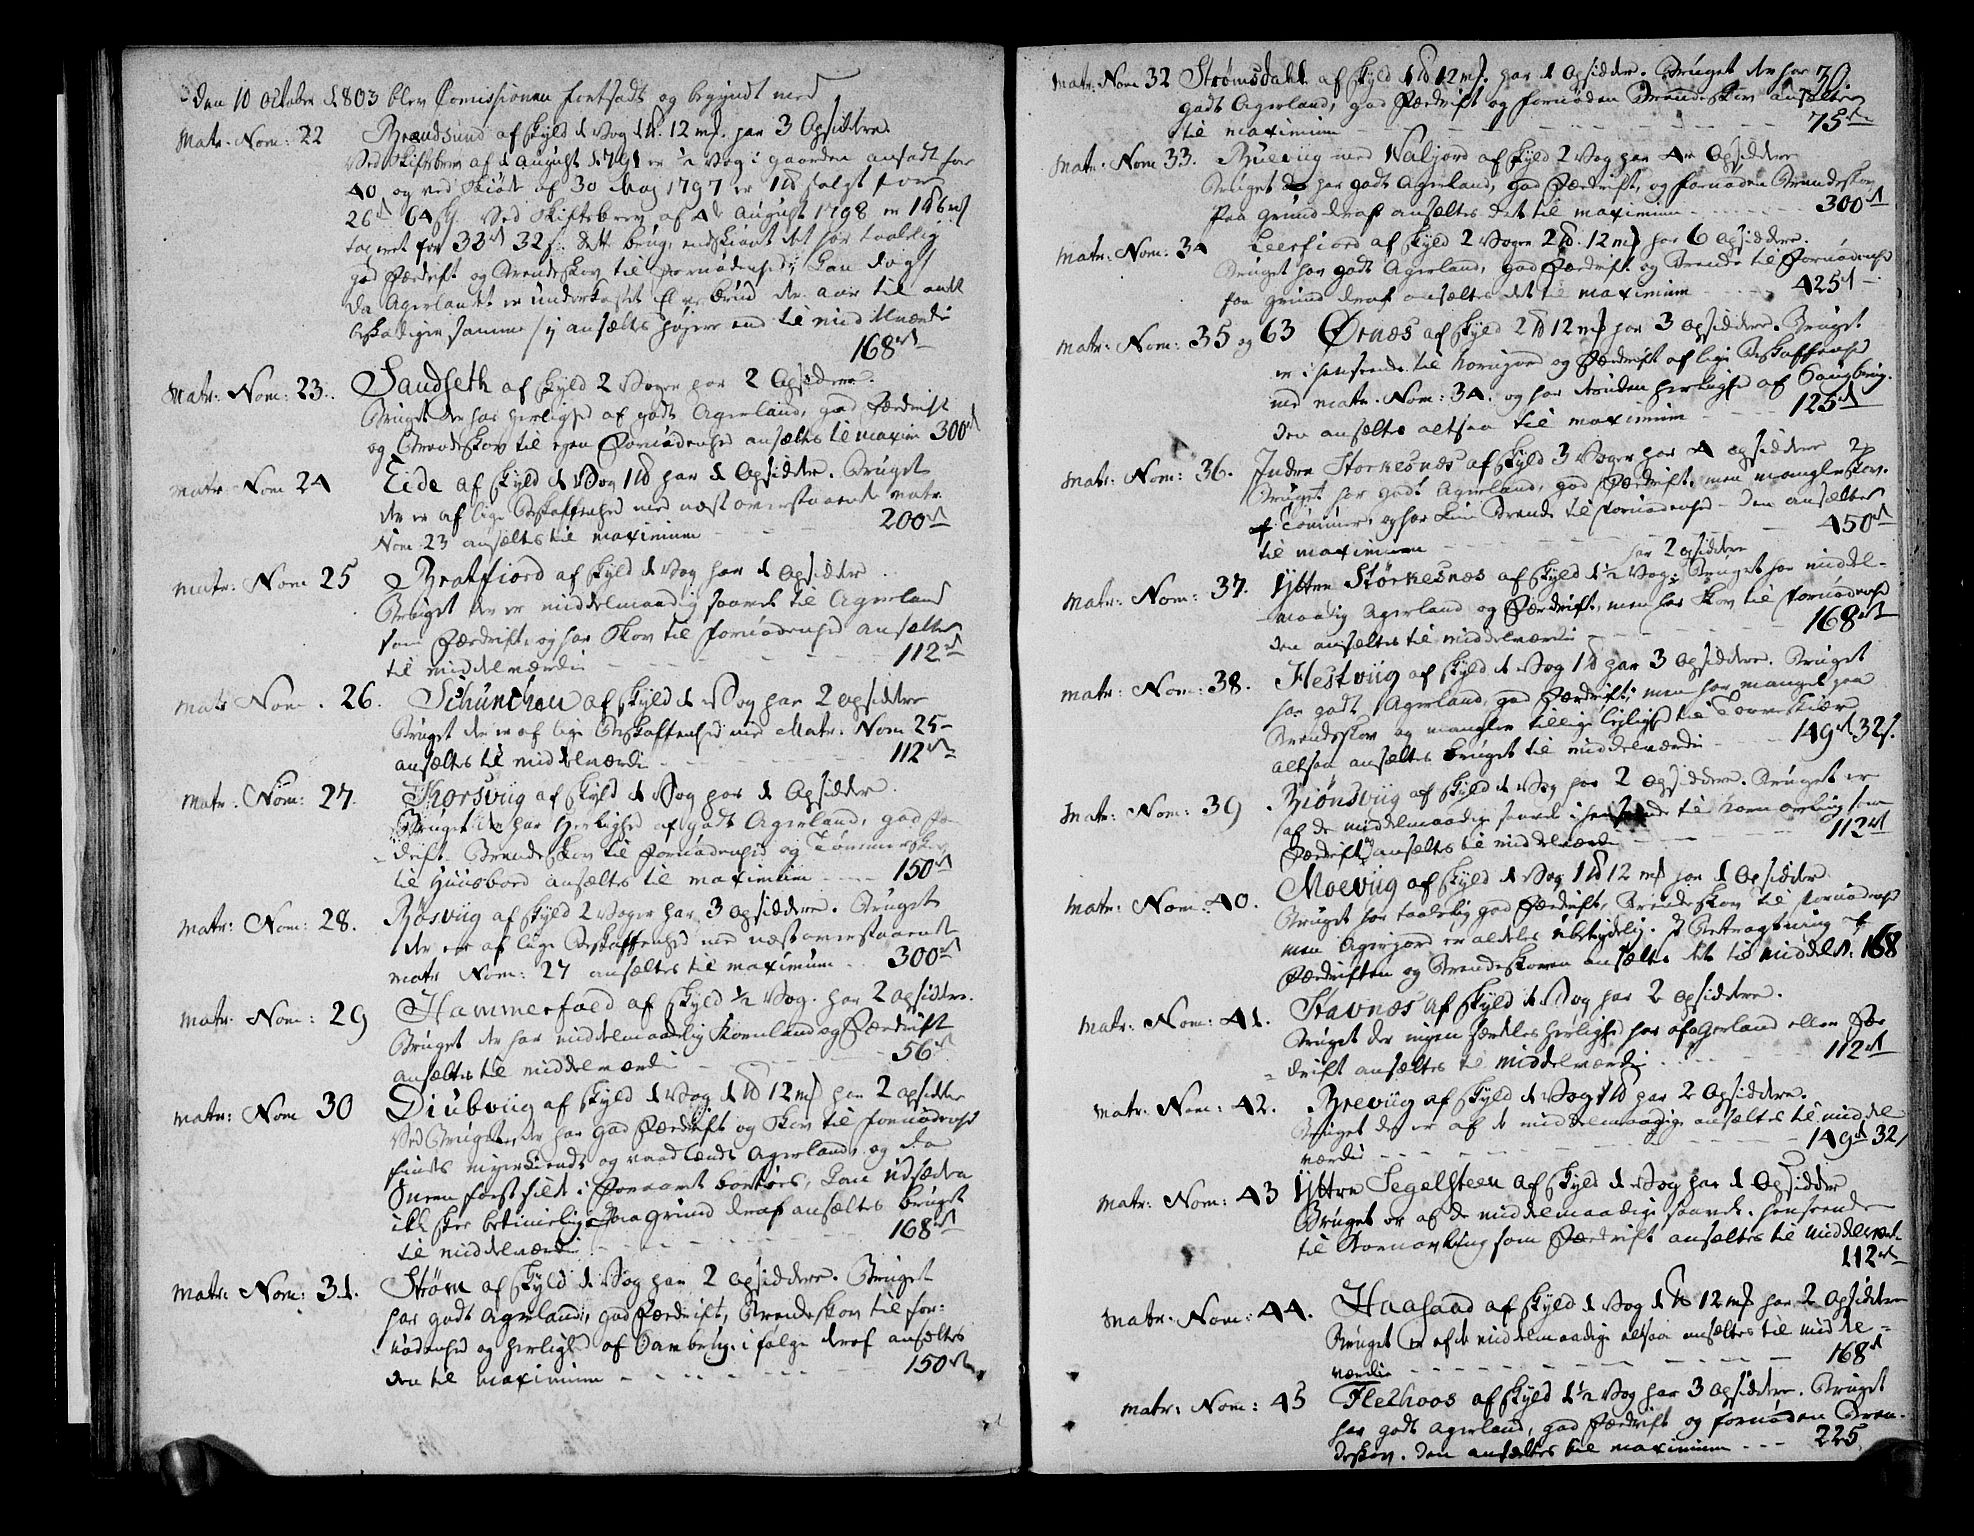 Den 10 October 1803 blev Comissionen fortsadt og begyndt med
Matr. Nom: 22 Brandsund af Skyld 1 Vog 1 lb. 12 mk. har 3 Opsiddere.
Ved Skiftebrev af 1 August 1791 er 1/2 Vog i gaarden ansadt for
40 og ved Skiøde af 30 May 1797 er 1 lb solgt for
26 rd 64 s. Ved Skiftebrev af 4de August 1798 er 1 lb 6 mk
taxeret for 33 rd 32 s. dette brug, endskiønt det har taalelig
god Fædrift og Brendeskov til Fornødenhed, kan dog
da Agerlandet er underkastet El vebrud der aar til andet
beskadiger samme, ej ansættes højere end til Middelværdie
168 rd
Matr. Nom: 23. Sandseth af Skyld 2 Voger har 2 Opsiddere.
Bruget der har herlighed af godt Agerland, god Fædrift
og Brendeskov til egen Fornødenhed ansættes til maxim 300 rd
Matr. Nom 24 Eide af Skyld 1 Vog 1 lb har 1 Opsidder. Bruget
der er af lige Beskaffenhed med næst overstaaende Matr.
Nom: 23 ansættes til maximum 200 rd
Matr. Nom 25 Bratfiord af Skyld 1 Vog har 1 Opsidder.
Bruget der er middelmaadig saavel til Agerland
som Fædrift, og har Skov til Fornødenhed ansættes
til middelværdie 112 rd
Matr Nom. 26. Schunchen af Skyld 1 Vog har 2 opsiddere
Bruget der er af lige Beskaffenhed med Matr. Nom 25-
ansættes til middelværdie 112 rd
Matr. Nom: 27. Korsviig af Skyld 1 Vog har 1 Opsidder.
Bruget der har Herlighed af godt Agerland, god Fæ-
drift. Brendeskov til Fornødenhed og Tømmerskov
til Huusbord ansættes til maximum 150 rd
Matr. Nom: 28. Røsviig af Skyld 2 Voger har 3 opsiddere. Bruget
der er af lige Beskaffenhed med næst overstaaende
matr Nom: 27 ansættes til maximum 300 rd
Matr. Nom: 29 Hammerfald af Skyld 1/2 Vog. har 2 opsiddere.
Bruget der har middelmaadig Kornland og Fædrift
ansættes til middelværdie 56 rd
Matr: Nom 30 Diubviig af Skyld 1 Vog 1 lb 12 mk har 2 opsiddere
Ved Bruget, der har god Fædrift og Skov til Fornødenhed
findes myrlændt og vaadlændt Agerland, og da
Sneen først sildt i Foraaret bortøes, kan Udsæden
ikke skee betimelig. Paa Grund deraf ansættes bruget
til middelværdie 168 rd
Matr: Nom: 31. Strøm af Skyld 1 Vog har 2 opsiddere. Bruget
har godt Agerland, god Fædrift, Brendeskov til for-
nødenhed og herlighed af Saugbrug. i følge deraf ansættes
den til maximum 150 rd
30.
Matr. Nom 32 Strømsdahl af Skyld 1 lb 12 mk. har 1 Opsidder. Bruget der har
godt Agerland, god Fædrift og fornøden Brendeskov ansættes
til maximum 75 rd
Matr. Nom 33. Buviig med Valjord af Skyld 2 Vog har 4 Opsiddere
Bruget har godt Agerland, god Fædrift, og fornøden Brendeskov
Paa Grund deraf ansættes det til maximum 300 rd
Matr: Nom: 34 Leerfiord af Skyld 2 Voger 2 lb. 12 mk har 6 Opsiddere.
Bruget har godt Agerland, god Fædrift og Brende til Fornødenhed
paa grund deraf ansættes det til maximum 425 rd
Matr: Nom: 35 og 63 Ørnæs af Skyld 2 lb 12 mk har 3 opsiddere. Bruget
er i henseende til Kornjord og Fædrift af lige Beskaffenhed
med matr. Nom: 34. og har desuden herlighed af Saugbrug.
den ansættes altsaa til maximum 125 rd
Matr: Nom: 36. Indre Storkesnæs af Skyld 3 Voger har 4 opsiddere
Bruget har godt Agerland, god Fædrift, men mangler Skov
af Tømmer, og har kun Brende til Fornødenhed - den ansættes
til maximum 450 rd
har 2 opsiddere
Matr: Nom: 37. Yttre Størkesnæs af Skyld 1 1/2 Vog. Bruget har middel-
maadig Agerland og Fædrift, men har Skov til Fornødenhed
den ansættes til middelværdie 168 rd
Matr: Nom: 38. Hestviig af Skyld 1 Vog 1 lb har 3 Opsiddere. Bruget
har godt Agerland, god Fædrift, men har mangel paa
Brendeskov og mangler tillige lejlighed til Torveskiær
altsaa ansættes bruget til middelværdie 149 rd 32 s.
Matr: Nom: 39 Biønsviig af Skyld 1 Vog har 2 Opsiddere. Bruget er
af de middelmaadige saavel i henseende til Kornavling som
Fædrift, ansættes til middelværdie 112 rd
Matr: Nom: 40. Moeviig af Skyld 1 Vog 1 lb 12 mk har 1 Opsidder
Bruget har taalelig god Fædrift, Brendeskov til Fornødenhed
men Agerjord er aldeles ubetydelig. I Betragtning af
Fædriften og Brendeskoven ansættes det til middelv: 168
Matr: Nom: 41. Stavnæs af Skyld 1 Vog har 2 opsiddere.
Bruget der ingen særdeles herlighed har af Agerland eller Fæ-
drift ansættes til middelværdie 112 rd
Matr. Nom: 42. Breviig af Skyld 1 Vog 1 lb har 2 Opsiddere.
Bruget der er af de middelmaadige ansættes til middel
værdie 149 rd 32 s
Matr: Nom: 43 Yttre Segelsteen af Skyld 1 Vog har 1 Opsidder
Bruget er af de middelmaadige saavel i henseende
til Kornavling som Fædrift ansættes til middelvær.
112 rd
Matr: Nom: 44. Haasaad af Skyld 1 Vog 1 lb 12 mk har 2 Opsiddere
Bruget er af de middelmaadige altsaa ansættes til middel-
værdie 168 rd
Matr: Nom: 45 Flethoos af Skyld 1 1/2 Vog har 3 Opsiddere. Bruget
har godt Agerland, god Fædrift og fornøden Bren-
deskov. den ansættes til maximum 225.